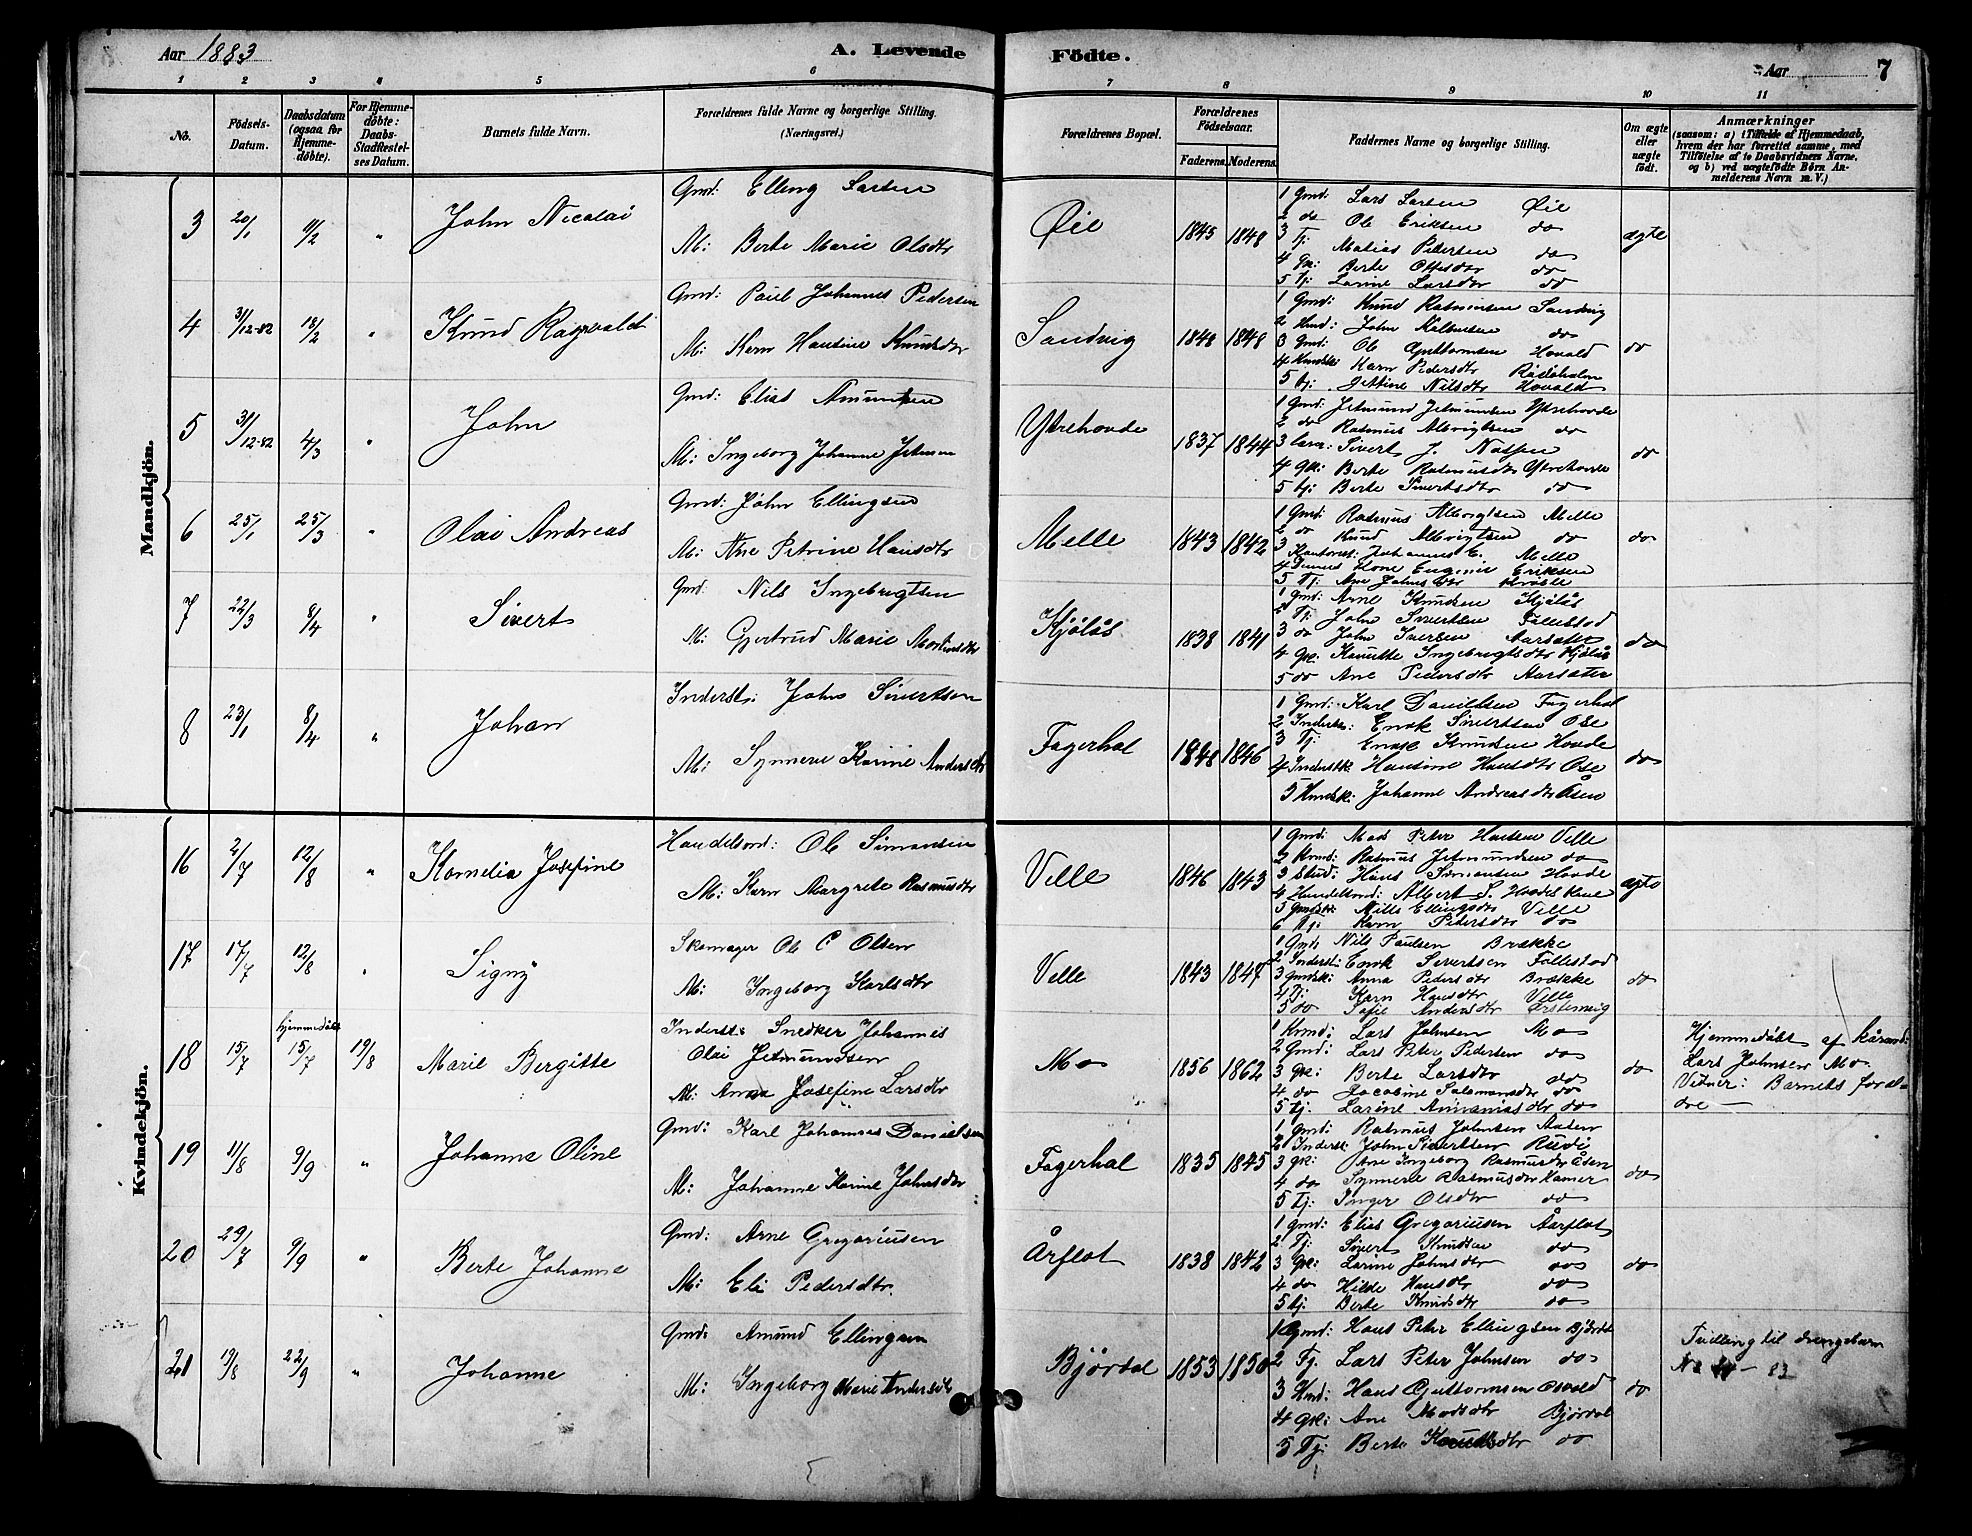 Aar 1883
A. Levende Födte.
Aar 7
1 2 3 4 5 6 7 8 9 10 11
No.
Födsels-Datum.
Daabsdatum (ogsaa for Hjemmedöbte).
For Hjemmedöbte: Daabs-Stadfæstelses Datum.
Barnets fulde Navn.
Forældrenes fulde Navne og borgerlige Stilling. (Næringsvei.)
Forældrenes Bopæl.
Forældrenes Födselsaar.
Faderens. Moderens.
Faddernes Navne og borgerlige Stilling.
Om ægte eller uægte födt.
Anmærkninger
(saasom: a) i Tilfælde af Hjemmedaab, hvem der har forrettet samme, med Tilföielse af to Daabsvidners Navne, og b) ved uægtefödte Börn Anmelderens Navn m. V.)
Mandkjön.
3 20/1 11/2 " John Nicolai
Gmd: Elling Larsen
M: Berte Marie Olsdtr
Øie 1845 1848
1 Gmd: Lars Larsen Øie
2 do Ole Eriksen do
3 Tj: Matias Pettersen do
4 Gk: Berte Ottesdtr do
5 Tj: Larine Larsdtr do
ægte
4 31/12-82 18/2 " Knud Ragnvald
Gmd: Paul Johannes Pedersen
M: Karn Hansine Knudsdtr
Sandvig 1848 1848
1 Gmd: Knud Rasmussen Sandvig
2 Kmd: John do
3 Gmd: Ole Guttormsen Hovald
4 Karn Pedersdtr
5 tj: Jetine Nilsdtr Hovald
do
5 31/12-82 4/3 " John
Gmd: Elias Amundsen
M: Ingeborg Johanne Jetmun
Ytrehovde 1837 1844
1 Gmd: Jetmund Jetmundsen Ytrehovde
2 do Rasmus Albrigtsen do
3 Sivert J.
4 Gk: Berte Rasmusdtr Ytrehovde
5 tj: Berte Sivertsdtr do
do
6 25/1 25/3 " Olai Andreas
Gmd: John Ellingsen
M: Ane Petrine Hansdtr
Melle 1843 1842
1 Gmd: Rasmus Albrigtsen Melle
2 do Knud Albrigtsen do
3 Johannes E. Melle
4 Eugenie Eriksen
5 Tj: Ane Johnsdtr
do
7 22/3 8/4 " Sivert
Gmd: Nils Ingebrigtsen
M: Gjertrud Marie Martinusdtr
Kjölås 1838 1841
1 Gmd: Arne Knudsen Kjölås
2 Tj: John Sivertsen Follestad
3 do John Iversen Aarsæter
4 Gk: Knutte Ingebrigtsdtr Kjölås
5 do Ane Pedersdtr Aarsæter
do
8 23/1 8/4 " Johan
Inderst: John Sivertsen
M: Synneve Karine Andersdtr
Fagerhol 1848 1846
1 Gmd: Karl Danielsen Fagerhol
2 Inderst: Enok Sivertsen Ose
3 Tj: Enok Knudsen Hovde
4 Inderstk: Hansine Hansdtr Ose
5 Kmdsk: Johanne Andreasdtr Åsen
do
Kvindekjön.
16 2/7 12/8 " Kornelia Josefine
Handelsmd: Ole Simonsen
M: Karn Margrete Rasmusdtr
Velle 1846 1843
1 Gmd: Mads Peter Hansen Velle
2 Kmd: Rasmus Jetmundsen do
3 Stud: Hans Simonsen Hovde
4 Handelsmd: Albert S.
5 Gmdsk: Mille Ellingsdtr Velle
6 Tj: Karn Pedersdtr do
ægte
17 17/7 12/8 " Signy
Skomager Ole C Olsen
M: Ingeborg Karlsdtr
Velle 1843 1847
1 Gmd: Nils Paulsen Brække
2 Inderst: Enok Sivertsen Follestad
3 Gmdsk: Anna Pedersdtr Brække
4 Tj: Karn Hansdtr Velle
5 do Sofie Andersdtr Ørstenvig
do
18 15/7 hjemmedöbt 15/7 19/8 Marie Bergitte
Inderst: Snedker Johannes
Olai Jetmundsen
M: Anna Josefine Larsdtr
Mo 1856 1862
1 Kmd: Lars Johnsen Mo
2 Gmd: Lars Peter Pedersen do
3 Gk: Berte Larsdtr do
4 do Jacobine Salomonsdtr do
5 tj: Larine Ananiasdtr do
do
Hjemmedöbt af Kårmd:
Lars Johnsen Mo.
Vidner: Barnets foræl-
dre —
19 11/8 9/9 " Johanne Oline
Gmd: Karl Johannes Danielsen
M: Johanne Karine Johnsdtr
Fagerhol 1835 1845
1 Gmd: Rasmus Johnsen
2 Inderst: John Sivertsen
3 Gk: Ane Ingeborg Rasmusdtr Åsen
4 do Synneve Rasmusdtr
5 Tj: Inger Olsdtr do
do
20 29/7 9/9 " Berte Johanne
Gmd: Arne Gregoriusen
M: Eli Pedersdtr.
Årflot 1838 1842
1 Gmd: Elias Gregoriusen Aarflot
2 Tj: Sivert Knudsen do
3 Gk: Larine Johnsdtr do
4 do Hilde Hansdtr do
5 tj: Berte Knudsdtr do
do
21 19/8 22/9 " Johanne
Gmd: Amund Ellingsen
M: Ingeborg Marie Andersdtr
Bjørdal 1853 1850
1 Gmd: Hans Peter Ellingsen Björdal
2 Tj. Lars Peter Johnsen do
3 Kmd: Hans Guttormsen Osvold
4 Gk: Ane Madsdtr Bjørdal
5 Tj: Berte Knudsdtr do
do
Tvilling til drengebarn
No — 83